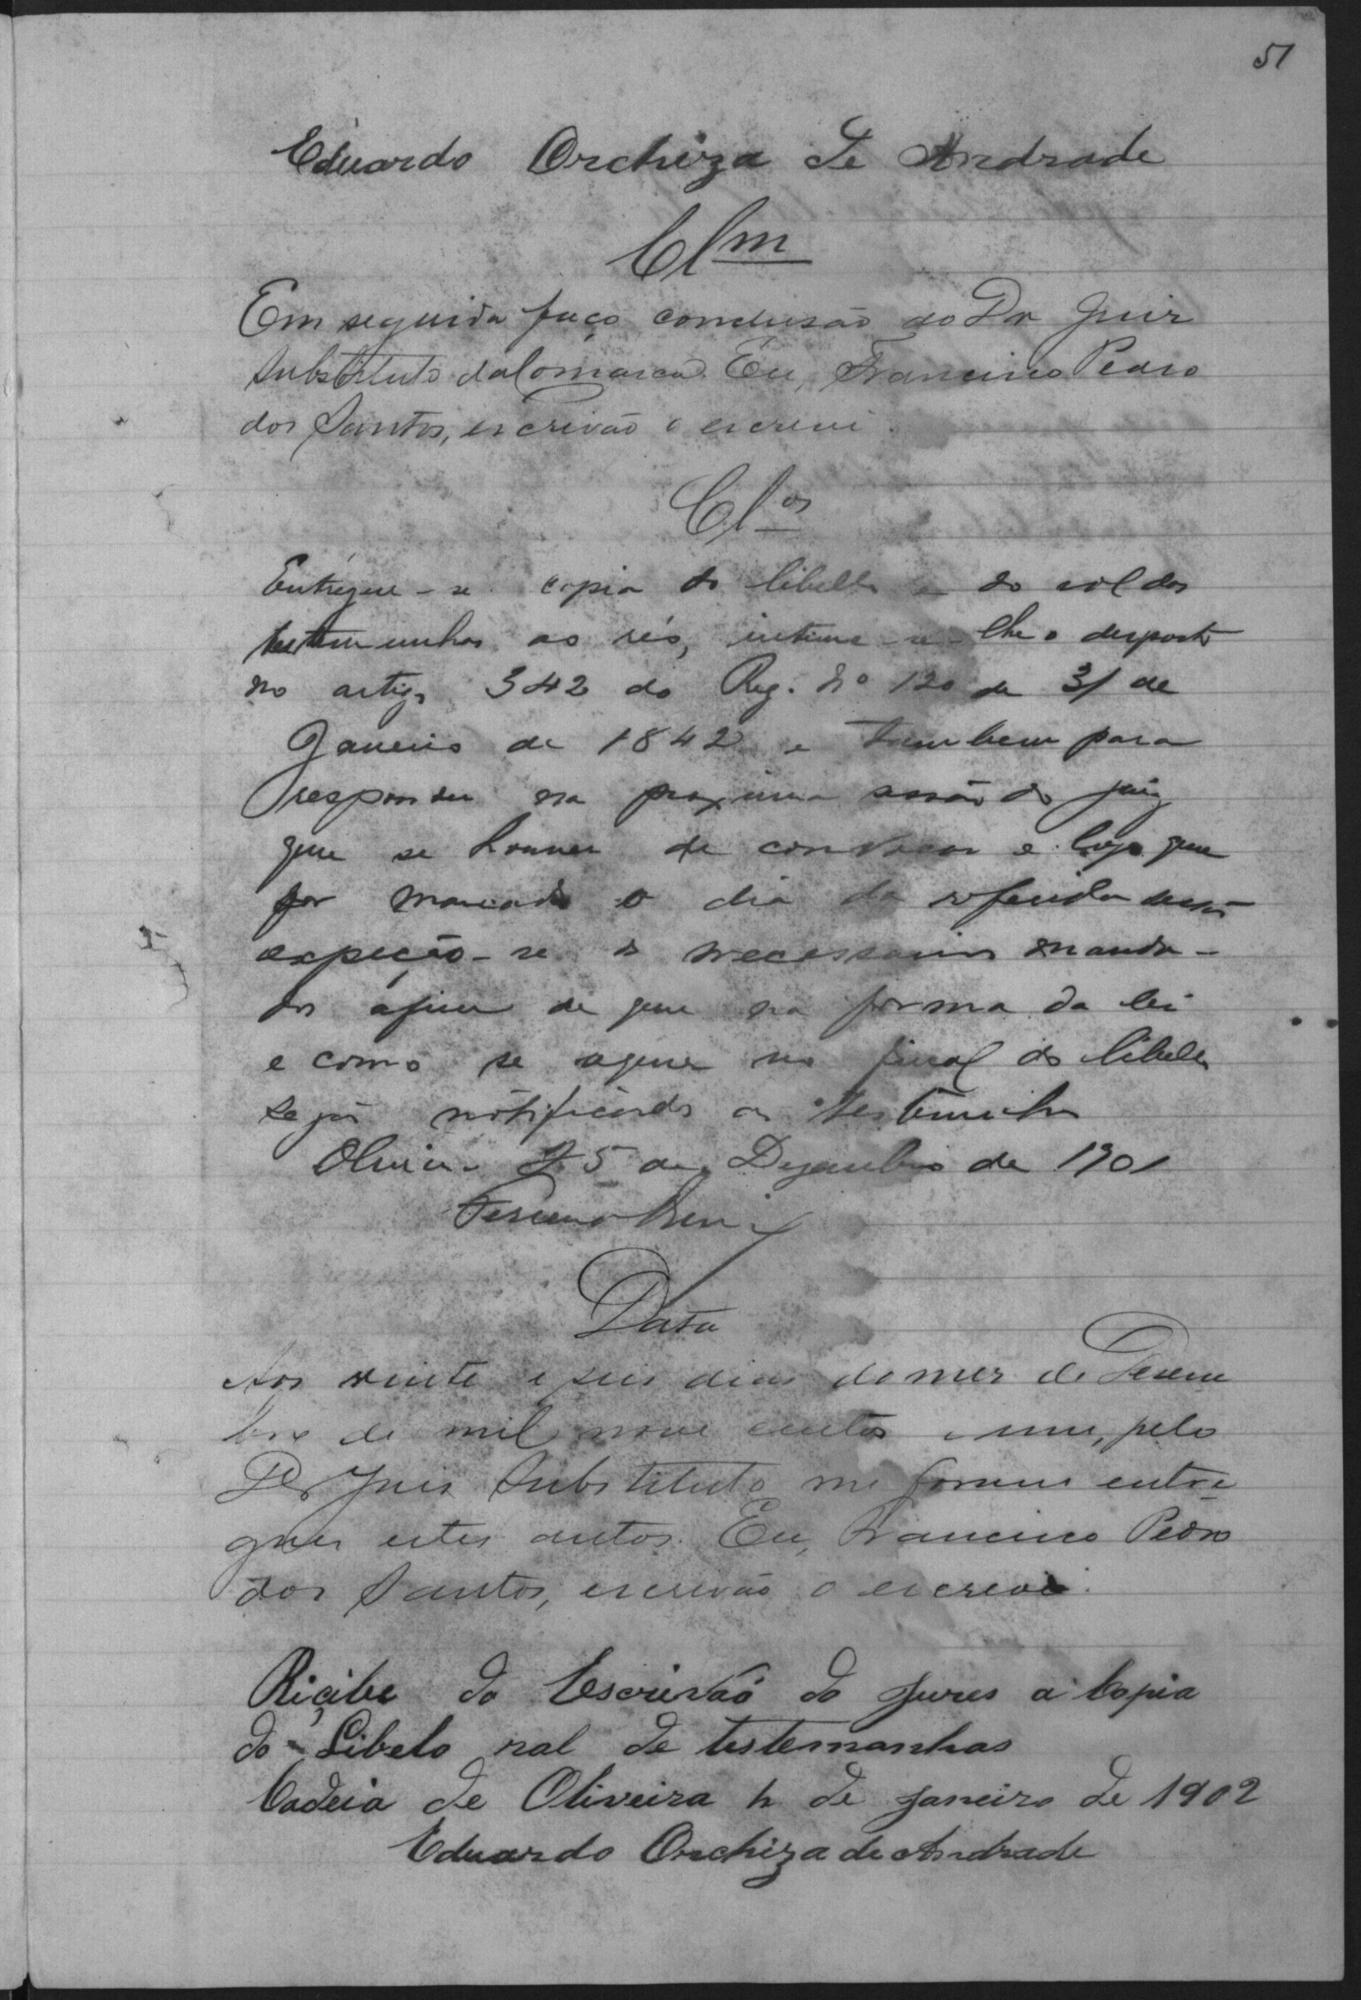 51
Eduardo Orchiza de Andrade
Clm
Em seguida faço conclusão ao Dr Juiz
Substituto da Comarca. Eu, Francisco Pedro
dos Santos, escrivão o escrevi.
Clos
Entregue-se copia do libello e do rol das
testemunhas ao réo, intime-se-lhe o disposto
no artigo 342 do Reg. Nº 120 de 31 de
Janeiro de 1842 e tambem para
responder na proxima sessão do jury
que se houver de convocar e logo que
for marcado o dia da referida sessão
expeção-se os necessarios manda-
dos afim de que na forma da lei
e como se requer no final do libello
sejão notificadas as testemunhas
Oliveira 25 de Dezembro de 1901
Data
Aos vinte e seis dias do mez de Dezem
bro de mil nove centos e um, pelo
Dr Juiz Substituto me foram entre
gues estes autos. Eu, Francisco Pedro
dos Santos, escrivão o escrevi.
Riçibe do Escrivaõ do Jures a Copia
do Libelo ral de testemanhas
Cadeia de Oliveira 4 de Janeiro de 1902
Eduardo Orchiza de Andrade